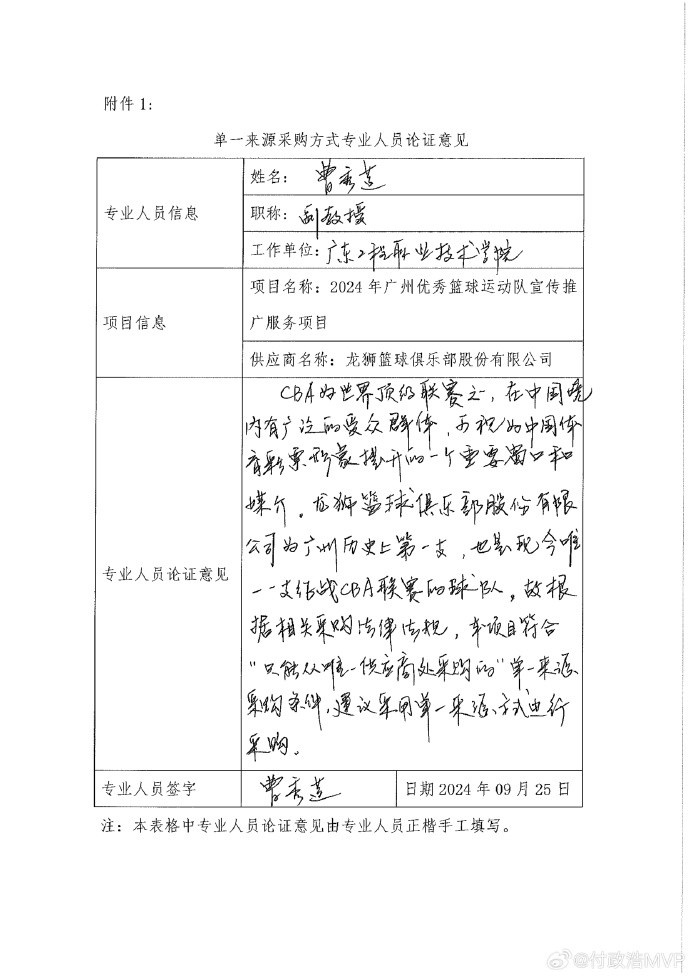 附件 1：
单一来源采购方式专业人员论证意见
专业人员信息
姓名： 曹秀莲
职称： 副教授
工作单位：广东工程职业技术学院
项目信息
项目名称：2024 年广州优秀篮球运动队宣传推
广服务项目
供应商名称：龙狮篮球俱乐部股份有限公司
专业人员论证意见
CBA为世界顶级联赛之一，在中国境
内有广泛的受众群体，可视为中国体
育彩票形象提升的一个重要窗口和
媒介。龙狮篮球俱乐部股份有限
公司为广州历史上第一支，也是现今唯
一一支征战CBA联赛的球队。故根
据相关采购法律法规，本项目符合
“只能从唯一供应商处采购的”单一来源
采购条件，建议采用单一来源方式进行
采购。
专业人员签字
曹秀莲
日期 2024 年 09 月 25 日
注：本表格中专业人员论证意见由专业人员正楷手工填写。
@付政浩MVP